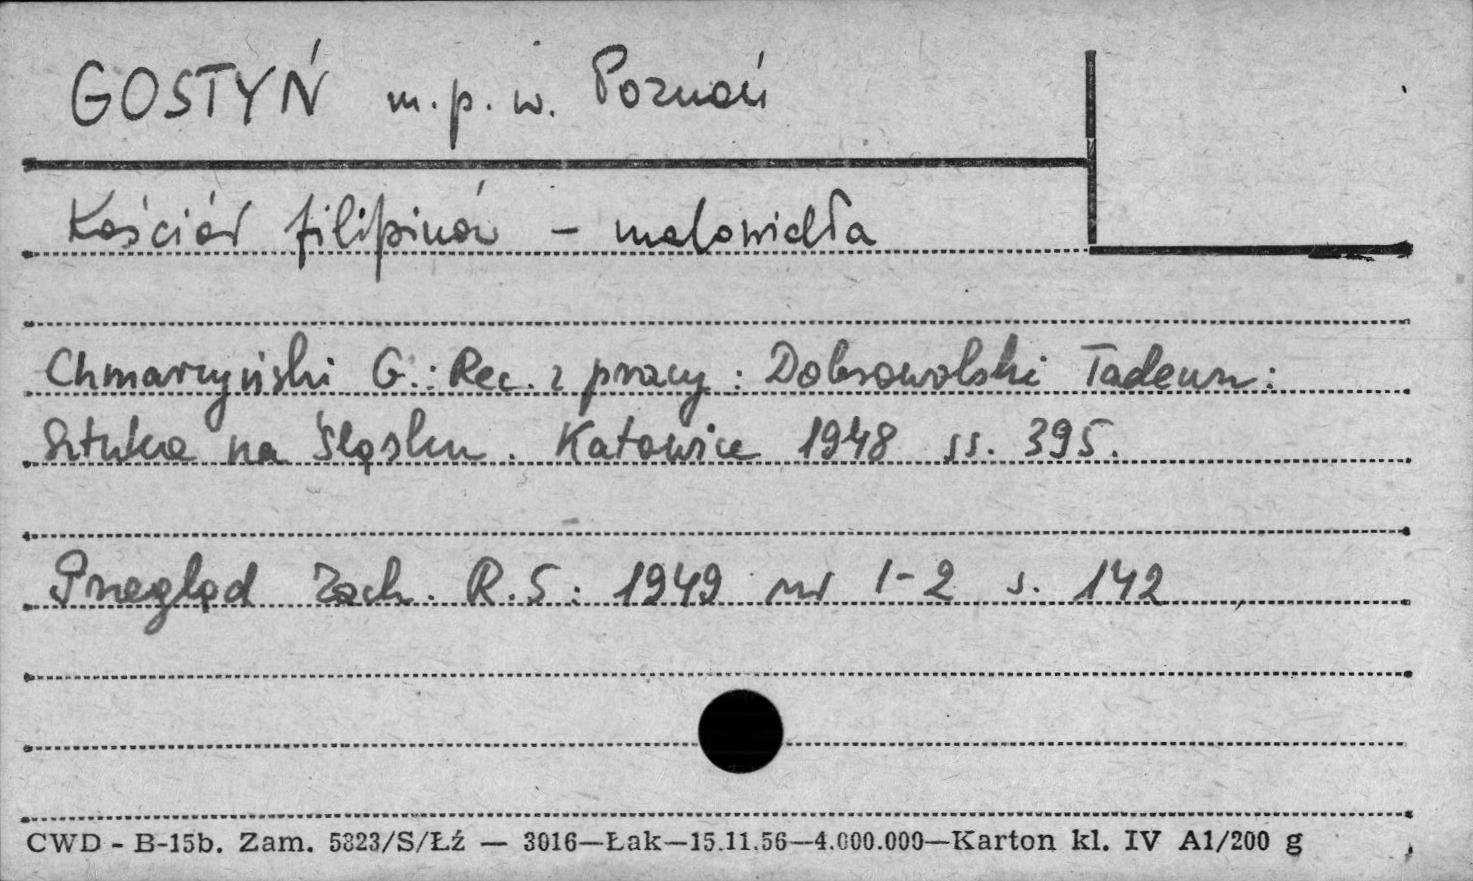 GOSTYŃ m.p.w. Poznań
Kościół filipinów – malowidła
Chmarzyński G.: Rec. z pracy: Dobrowolski Tadeusz:
Sztuka na Śląsku. Katowice 1948 ss. 395.
Przegląd Zach. R.5: 1949 nr 1-2 s. 142
CWD - B-15b. Zam. 5823/S/Łź — 3016—Łak—15.11.56—4.000.000—Karton kl. IV A1/200 g